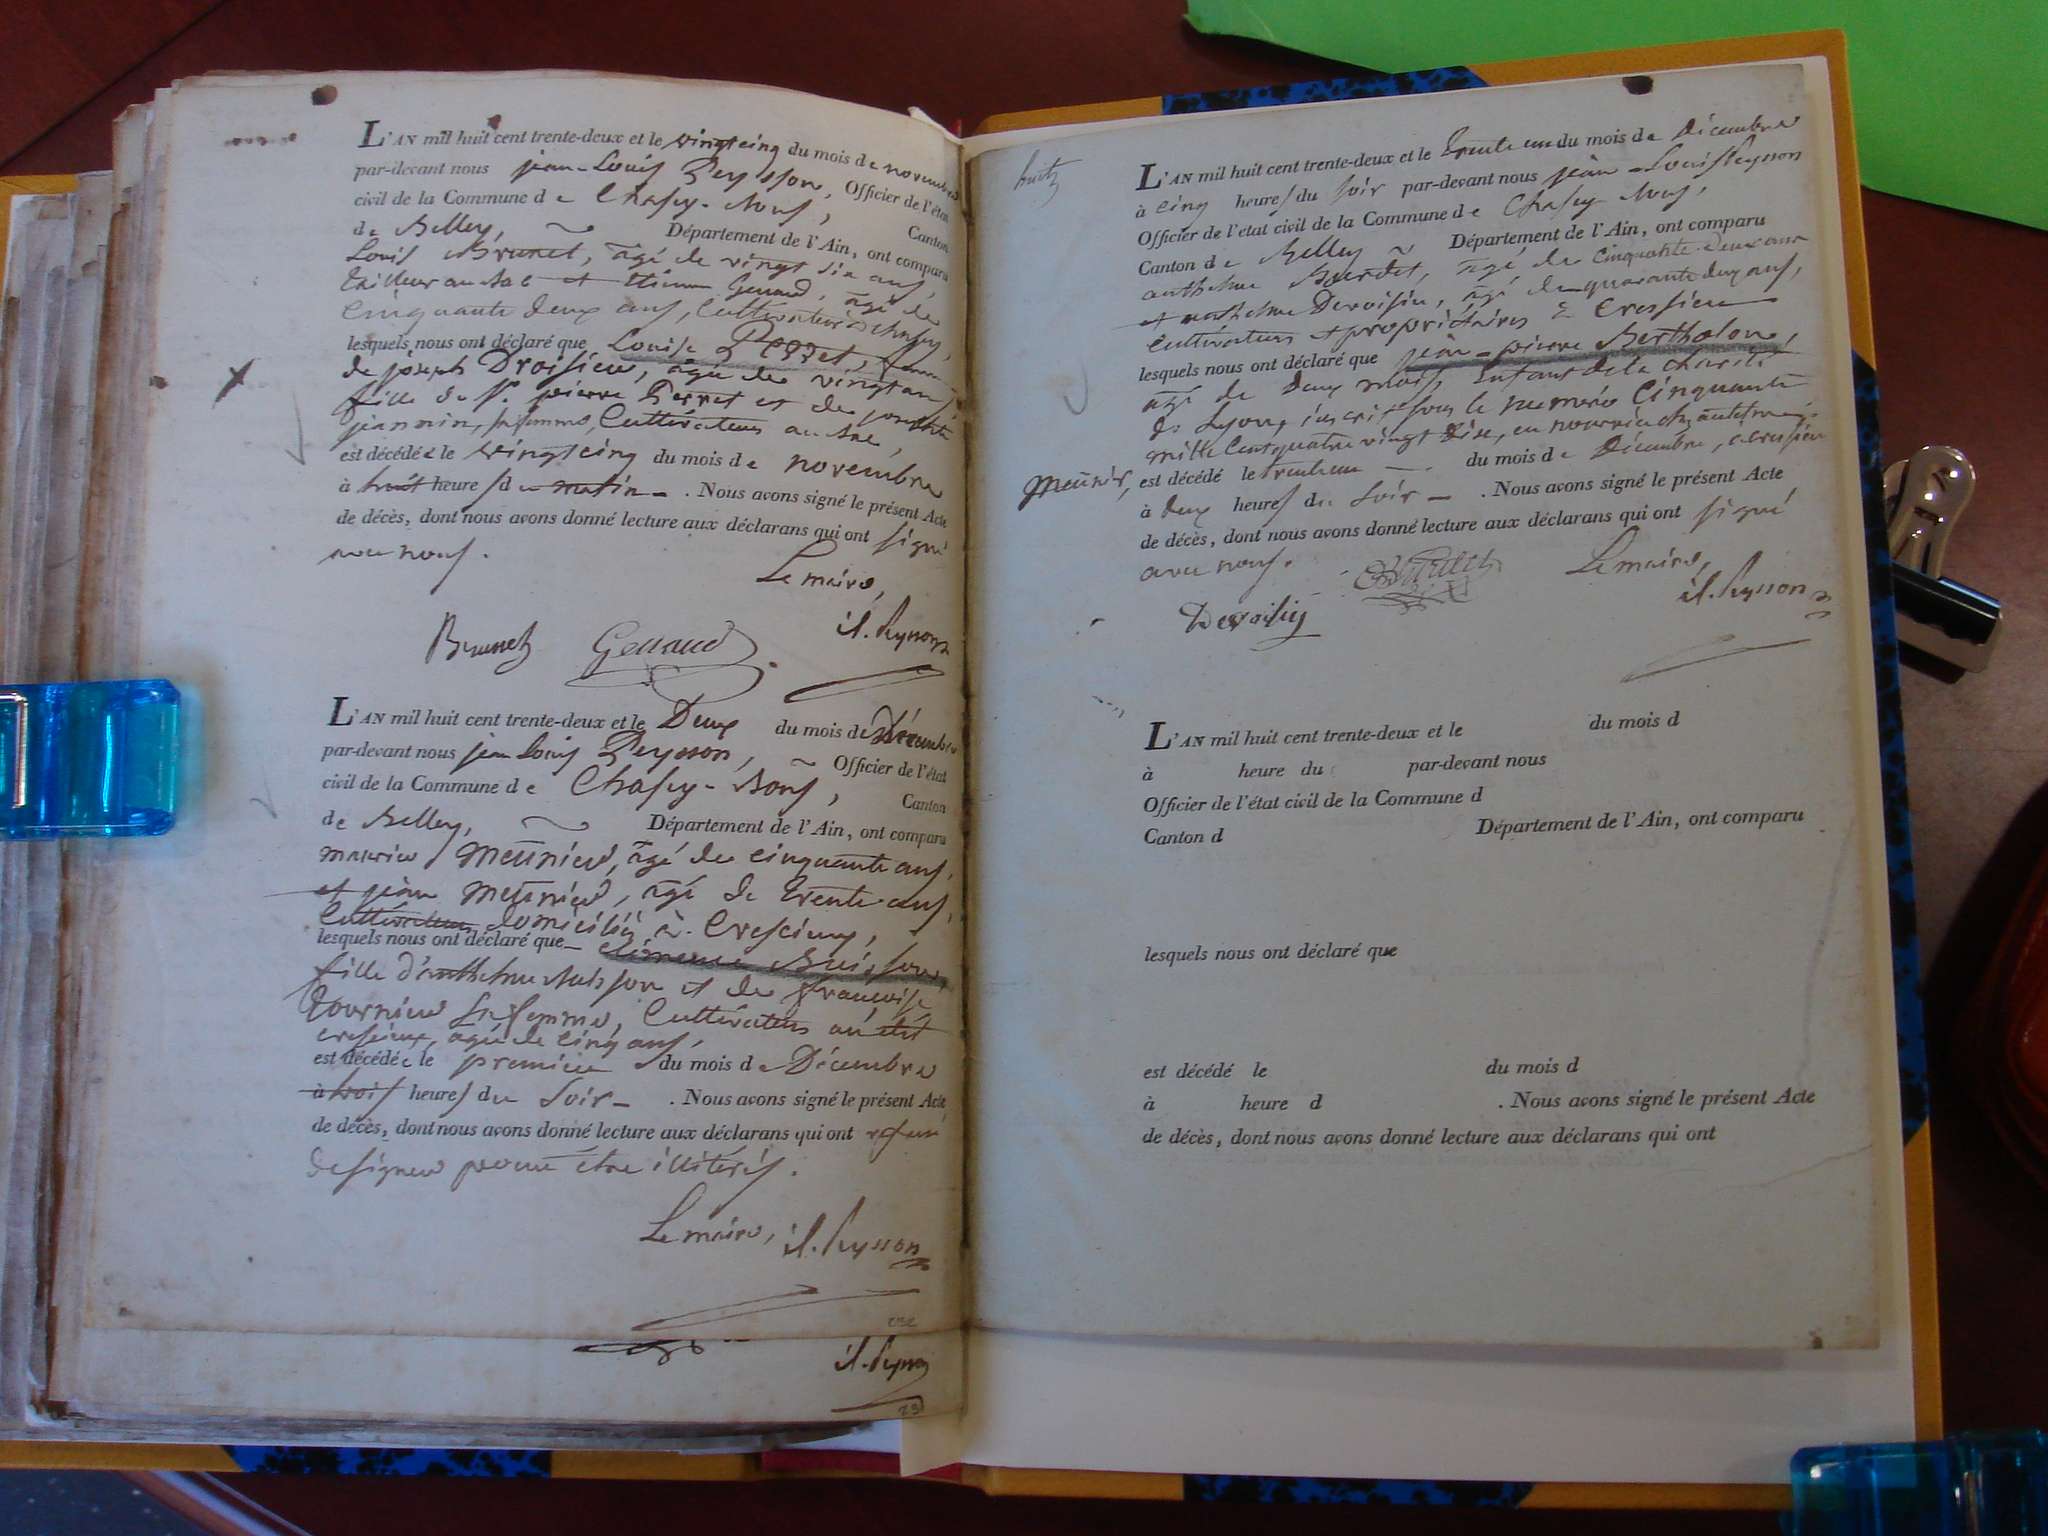 L'AN mil huit cent trente-deux et le vingtcinq du mois de novembre
par-devant nous jean-Louis Peysson, Officier de l'état
civil de la Commune de Chasey-Bons, Canton
de Belley, Département de l'Ain, ont comparu
Louis Brunet, âgé de vingt six ans,
tailleur au et Genaud, âgé de
cinquante deux ans, Cultivateur
lesquels nous ont déclaré que Louise Perret, femme
de joseph Droisieu, âgée de vingt ans,
fille de pierre Perret et de josephte
jeannin, sa femme, Cultivateurs
est décédée le vingtcinq du mois de novembre
à huit heures du matin. Nous avons signé le présent Acte
de décès, dont nous avons donné lecture aux déclarans qui ont signé
avec nous.
Le maire,
Brunet Genaud jl. Peysson
L'AN mil huit cent trente-deux et le Deux du mois de Décembre
par-devant nous jean Louis Peysson, Officier de l'état
civil de la Commune de Chasey-Bons, Canton
de Belley, Département de l'Ain, ont comparu
maurice meunier, âgé de cinquante ans,
et meunier, âgé de trente ans,
Cultivateurs domiciliés à Cressieux,
lesquels nous ont déclaré que clémence Buisson,
fille d'anthelme Buisson et de françoise
fournier sa femme, Cultivateurs au dit
cressieux, agée de cinq ans,
est décédée le premier du mois de Décembre
à trois heures du Soir. Nous avons signé le présent Acte
de décès, dont nous avons donné lecture aux déclarans qui ont refusé
de signer pour être illitérés.
Le maire, jl. Peysson
jl. Peysson
23
huit
L'AN mil huit cent trente-deux et le trente un du mois de Décembre
à cinq heures du soir par-devant nous jean-Louis Peysson
Officier de l'état civil de la Commune de Chasey Bons,
Canton de Belley Département de l'Ain, ont comparu
anthelme Burdet, âgé de cinquante-deux ans
et anthelme Devoisin, âgé de quarante deux ans,
cultivateurs et propriétaires à Cressieu
lesquels nous ont déclaré que jean-pierre Bertholon,
âgé de Deux mois, Enfant de la charité
de Lyon, inscrit sous le numéro Cinquante
mille Cent quatre vingt dix, en nourrice chez
meunier, est décédé le trente un du mois de Décembre, à cressieu
à deux heures du Soir. Nous avons signé le présent Acte
de décès, dont nous avons donné lecture aux déclarans qui ont signé
avec nous. Burdet Le maire,
jl. Peysson
L'AN mil huit cent trente-deux et le du mois d
à heure du par-devant nous
Officier de l'état civil de la Commune d
Canton d Département de l'Ain, ont comparu
lesquels nous ont déclaré que
est décédé le du mois d
à heure d . Nous avons signé le présent Acte
de décès, dont nous avons donné lecture aux déclarans qui ont